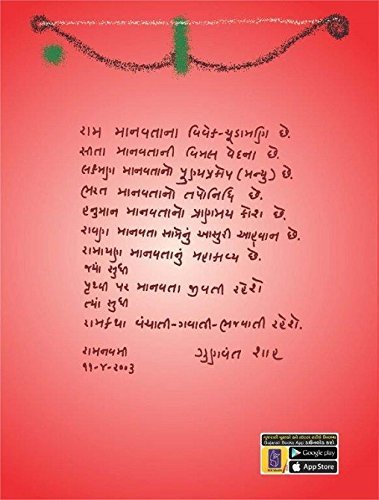 રામ માનવતાના વિવેક-ચૂડામણિ છે.
સીતા માનવતાની વિમલ વેદના છે.
લક્ષ્મણ માનવતાનો પુણ્યપ્રકોપ (મન્યુ) છે.
ભરત માનવતાનો તપોનિધિ છે.
હનુમાન માનવતાનો પ્રાણમય કોશ છે.
રાવણ માનવતા સામેનું આસુરી આહ્વાન છે.
રામાયણ માનવતાનું મહાકાવ્ય છે.
જ્યાં સુધી
પૃથ્વી પર માનવતા જીવતી રહેશે
ત્યાં સુધી
રામકથા વંચાતી-ગવાતી-ભજવાતી રહેશે.
રામનવમી
૧૧-૪-૨૦૦૩
ગુણવંત શાહ
Google play
App Store